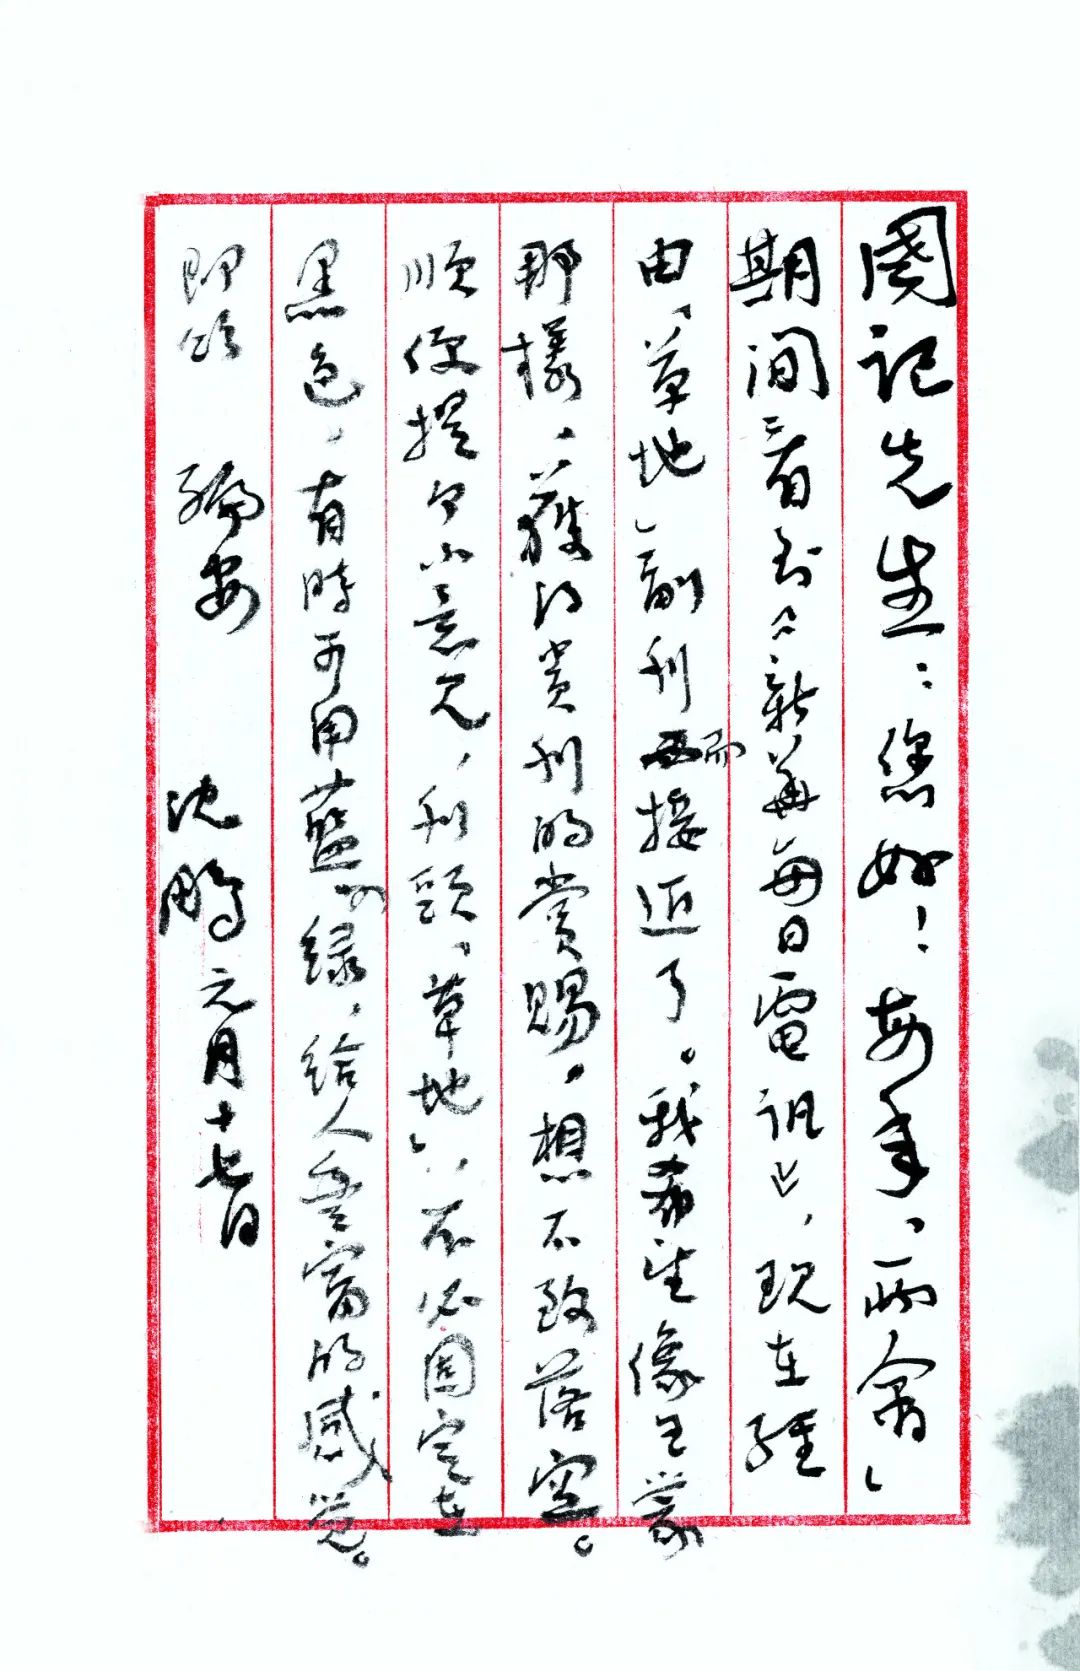 國记先生：您好！每年“兩會”
期间看到《新華每日電讯》，现在經
由“草地”副刊而接近了。我希望像王蒙
那樣，獲得贵刊的赏赐，想不致落空。
顺便提个小意见，刊頭“草地”，不必固定在
黑色，有時可用藍或绿，给人豐富的感觉。
即颂 编安 沈鹏 元月十七日